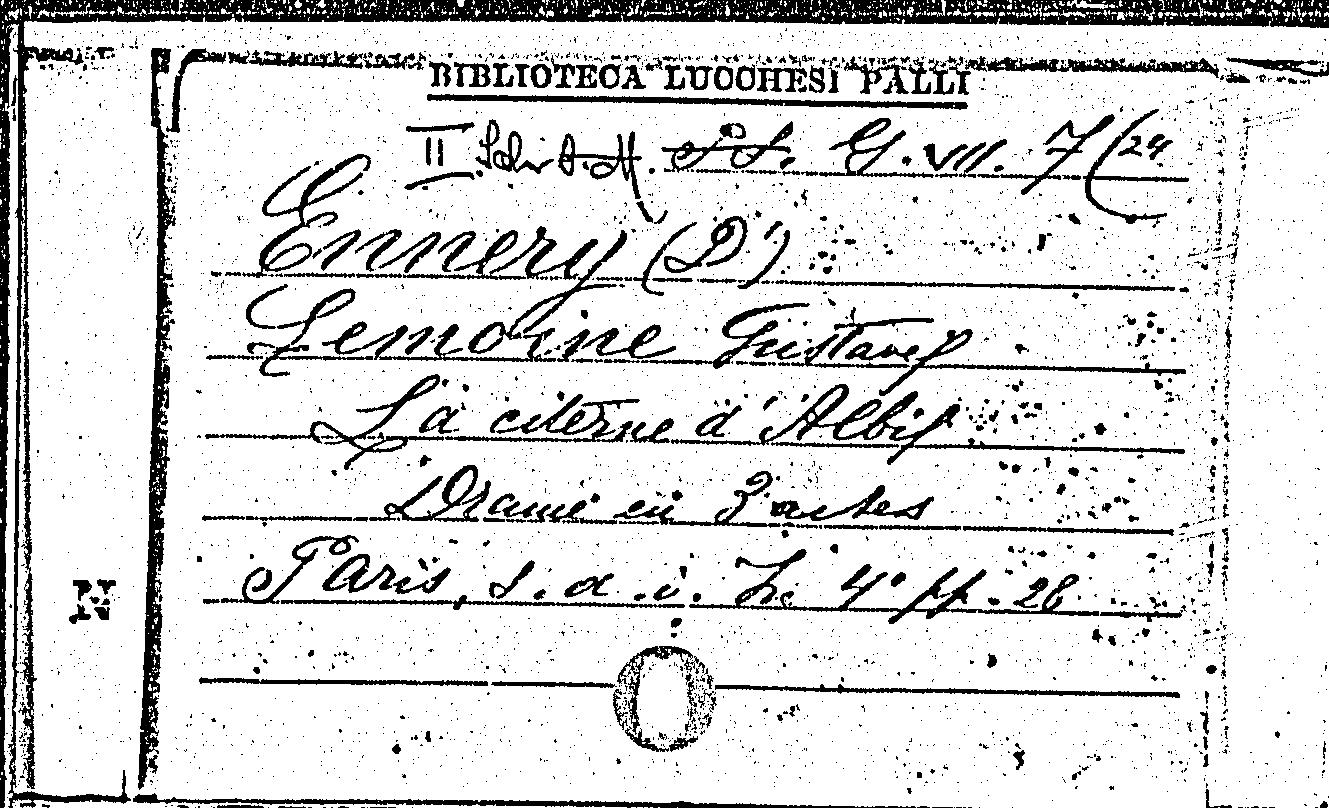 BIBLIOTECA LUCCHESI PALLI
II G. VII. 7(24
Ennery (D')
Lemoine Gustave
La citerne d'Albi
Drame en 3 actes
Paris, s. a. i. 4° pp. 28
N